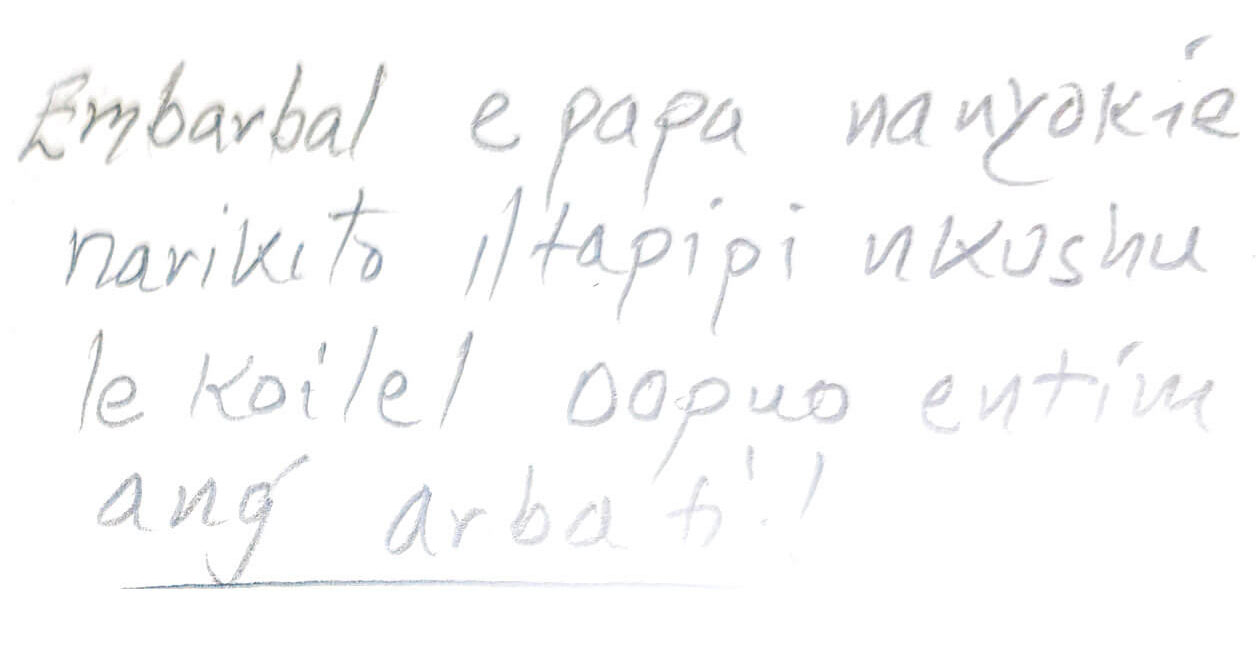 Embarbal e papa nanyokie
narikito iltapipi nkushu
le koilel oopuo entim
ang arbati!